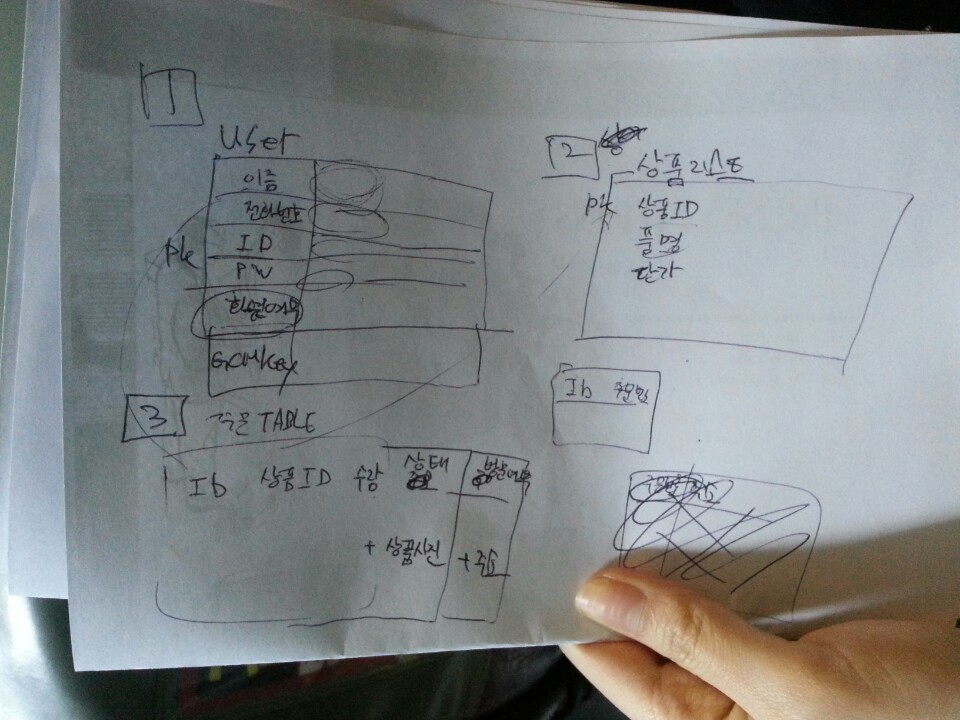 1
User
이름
전화번호
PK ID
PW
GCMKey
2
상품리스트
PK 상품ID
품명
단가
ID 주문번호
3 주문 TABLE
ID 상품ID 수량 상태
+ 상품사진 + 주소